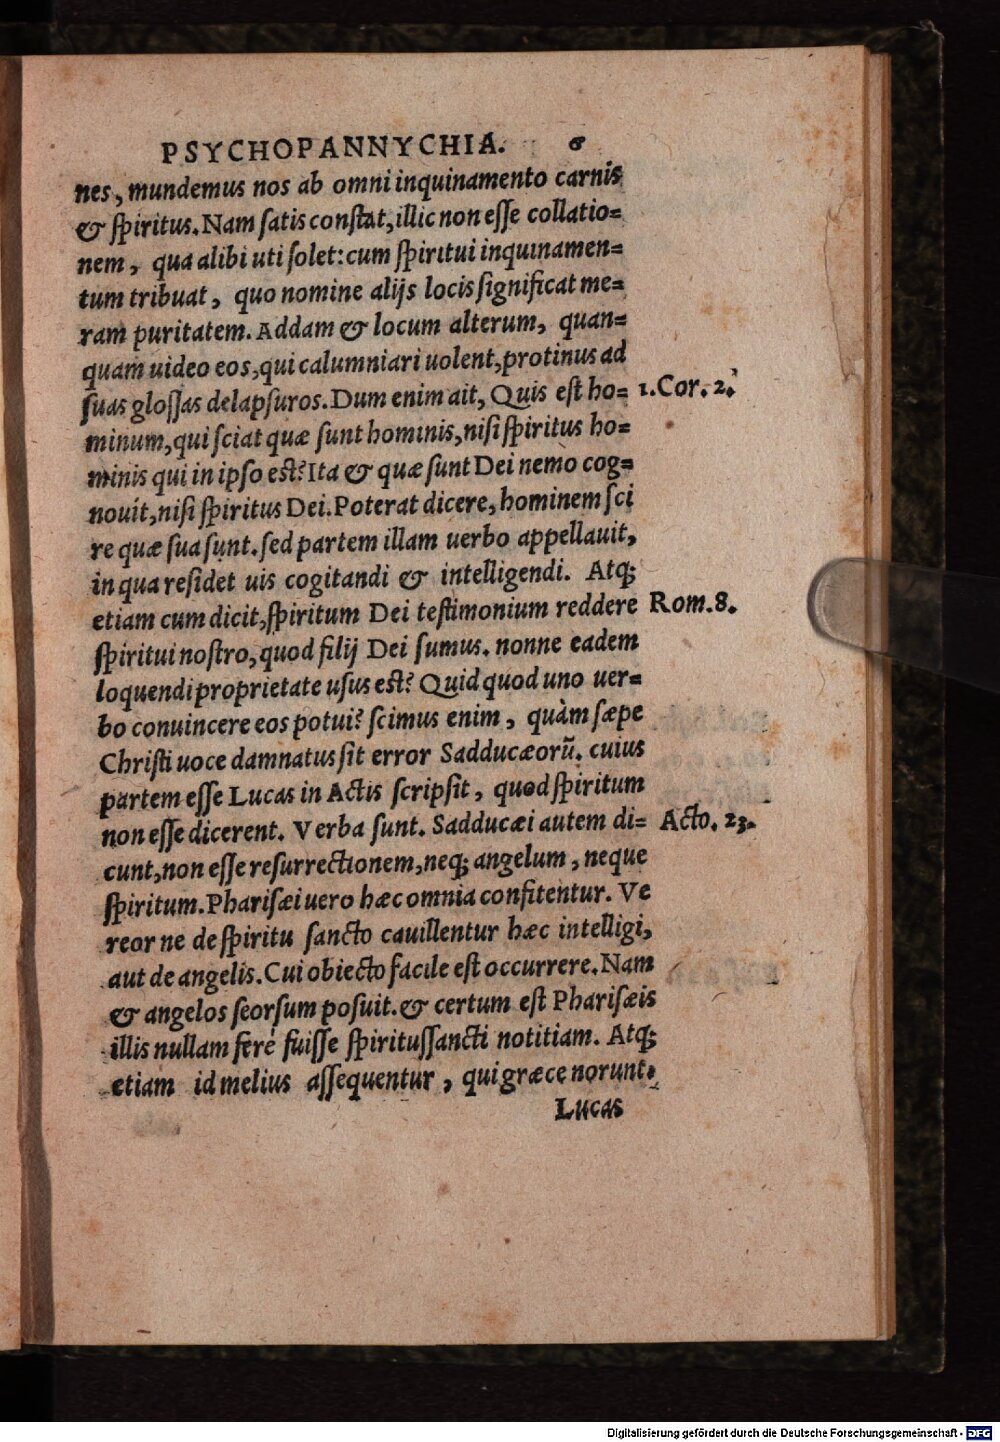 PSYCHOPANNYCHIA. 6
nes, mundemus nos ab omni inquinamento carnis
& ſpiritus. Nam ſatis conſtat, illic non eſſe collatio=
nem, qua alibi uti ſolet: cum ſpiritui inquinamen=
tum tribuat, quo nomine alijs locis ſignificat me=
ram puritatem. Addam & locum alterum, quan=
quam uideo eos, qui calumniari uolent, protinus ad
ſuas gloſſas delapſuros. Dum enim ait, Quis eſt ho= 1. Cor. 2.
minum, qui ſciat quæ ſunt hominis, niſi ſpiritus ho=
minis qui in ipſo eſt? Ita & quæ ſunt Dei nemo cog=
nouit, niſi ſpiritus Dei. Poterat dicere, hominem ſci
re quæ ſua ſunt. ſed partem illam uerbo appellauit,
in qua reſidet uis cogitandi & intelligendi. Atq;
etiam cum dicit, ſpiritum Dei teſtimonium reddere Rom. 8.
ſpiritui noſtro, quod filij Dei ſumus. nonne eadem
loquendi proprietate uſus eſt? Quid quod uno uer=
bo conuincere eos potui? ſcimus enim, quàm ſæpe
Chriſti uoce damnatus ſit error Sadducæorũ. cuius
partem eſſe Lucas in Actis ſcripſit, quod ſpiritum
non eſſe dicerent. Verba ſunt. Sadducæi autem di= Acto. 23.
cunt, non eſſe reſurrectionem, neq; angelum, neque
ſpiritum. Phariſæi uero hæc omnia confitentur. Ve
reor ne de ſpiritu ſancto cauillentur hæc intelligi,
aut de angelis. Cui obiecto facile eſt occurrere. Nam
& angelos ſeorſum poſuit. & certum eſt Phariſæis
illis nullam feré fuiſſe ſpirituſſancti notitiam. Atq;
etiam id melius aſſequentur, qui græce norunt.
Lucas
Digitalisierung gefördert durch die Deutsche Forschungsgemeinschaft - DFG